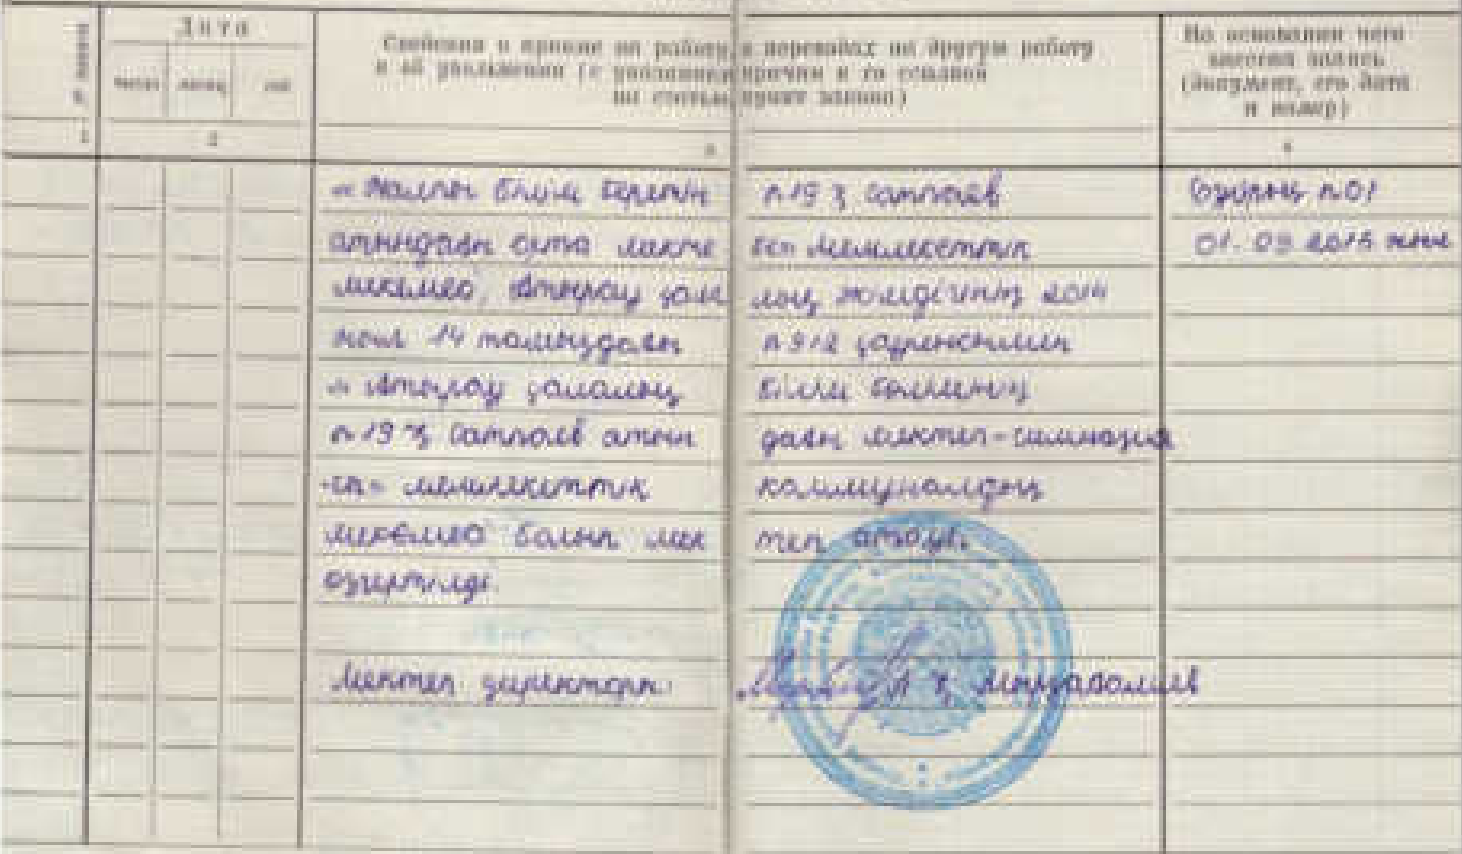 Дата
Сведения о приеме на работу, о переводах на другую работу
и об увольнении (с указанием причин и со ссылкой
на статью, пункт закона)
На основании чего
внесена запись
(документ, его дата
и номер)
№ записи
число месяц год
1 2 3 4
« Жалпы білім беретін n 19 Қ Сатпаев Бұйрық n 01
атындағы орта мекте бі» мемлекеттік 01. 09
мекемесі, Атырау қала лық әкімдігінің 2014
жыл 14 тамыздағы n 912 қаулысымен
« Атырау қалалық білім бөлімінің
n 19 Қ Сатпаев атын дағы мектеп-гимназия
сы» мемлекеттік коммуналдық
мекемесі болып мек теп атауы
өзгертілді.
Мектеп директоры: Қ